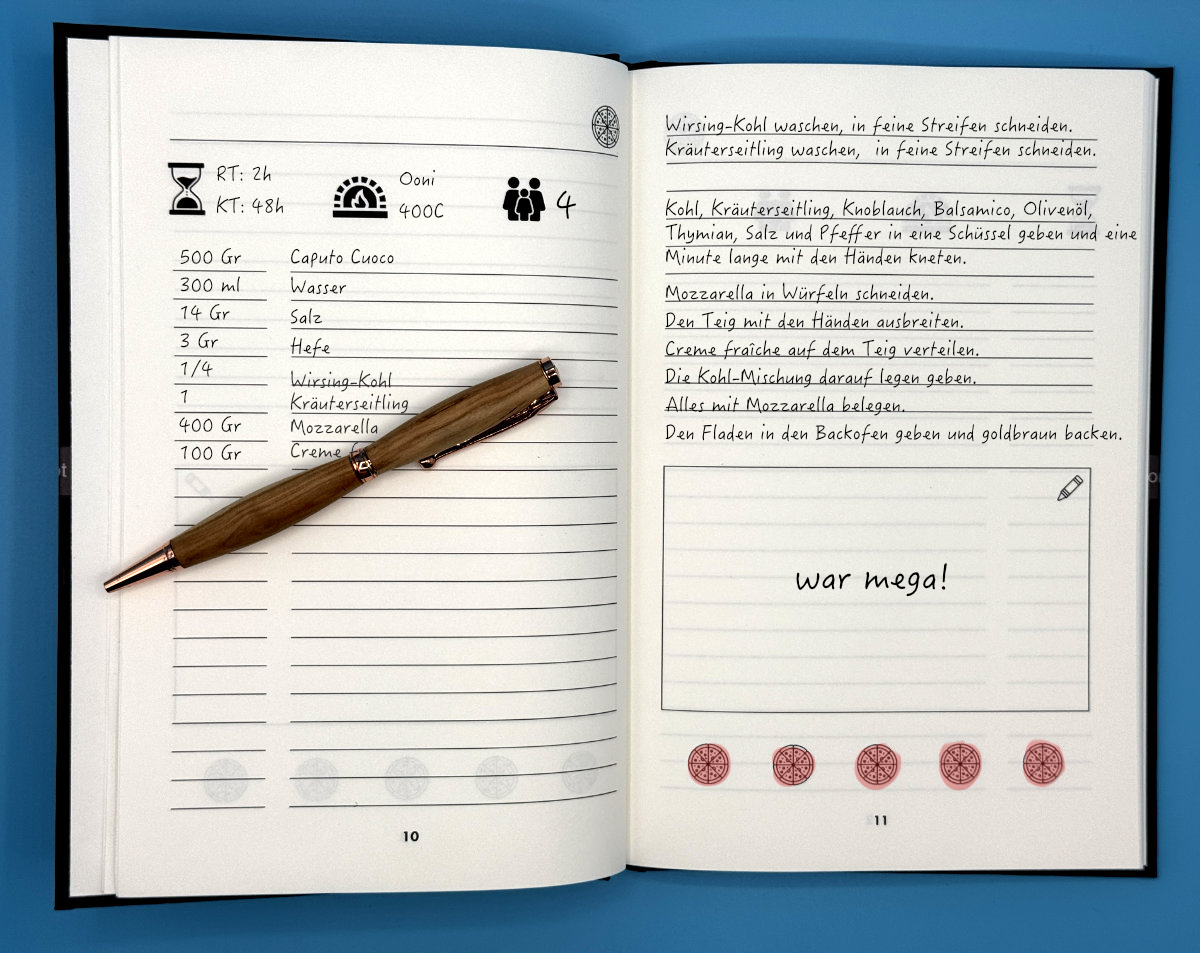 RT: 2h
KT: 48h
Ooni
400C
4
500 Gr Caputo Cuoco
300 ml Wasser
14 Gr Salz
3 Gr Hefe
1/4 Wirsing-Kohl
1 Kräuterseitling
400 Gr Mozzarella
100 Gr Creme
10
Wirsing-Kohl waschen, in feine Streifen schneiden.
Kräuterseitling waschen, in feine Streifen schneiden.
Kohl, Kräuterseitling, Knoblauch, Balsamico, Olivenöl,
Thymian, Salz und Pfeffer in eine Schüssel geben und eine
Minute lange mit den Händen kneten.
Mozzarella in Würfeln schneiden.
Den Teig mit den Händen ausbreiten.
Creme fraîche auf dem Teig verteilen.
Die Kohl-Mischung darauf legen geben.
Alles mit Mozzarella belegen.
Den Fladen in den Backofen geben und goldbraun backen.
war mega!
11